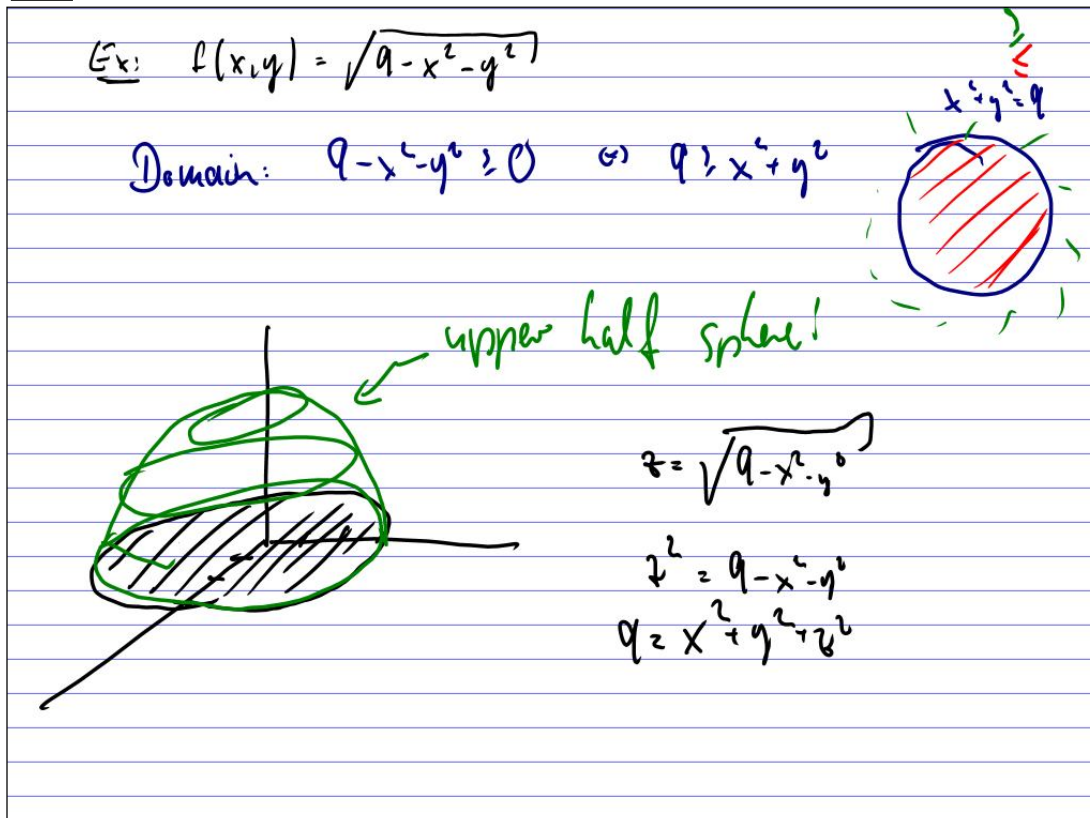 Ex: f(x,y) = √(9-x²-y²)
>
≤
x²+y²=9
Domain: 9-x²-y² ≥ 0 ⇔ 9 ≥ x²+y²
upper half sphere!
z = √(9-x²-y²)
z² = 9-x²-y²
9 = x²+y²+z²